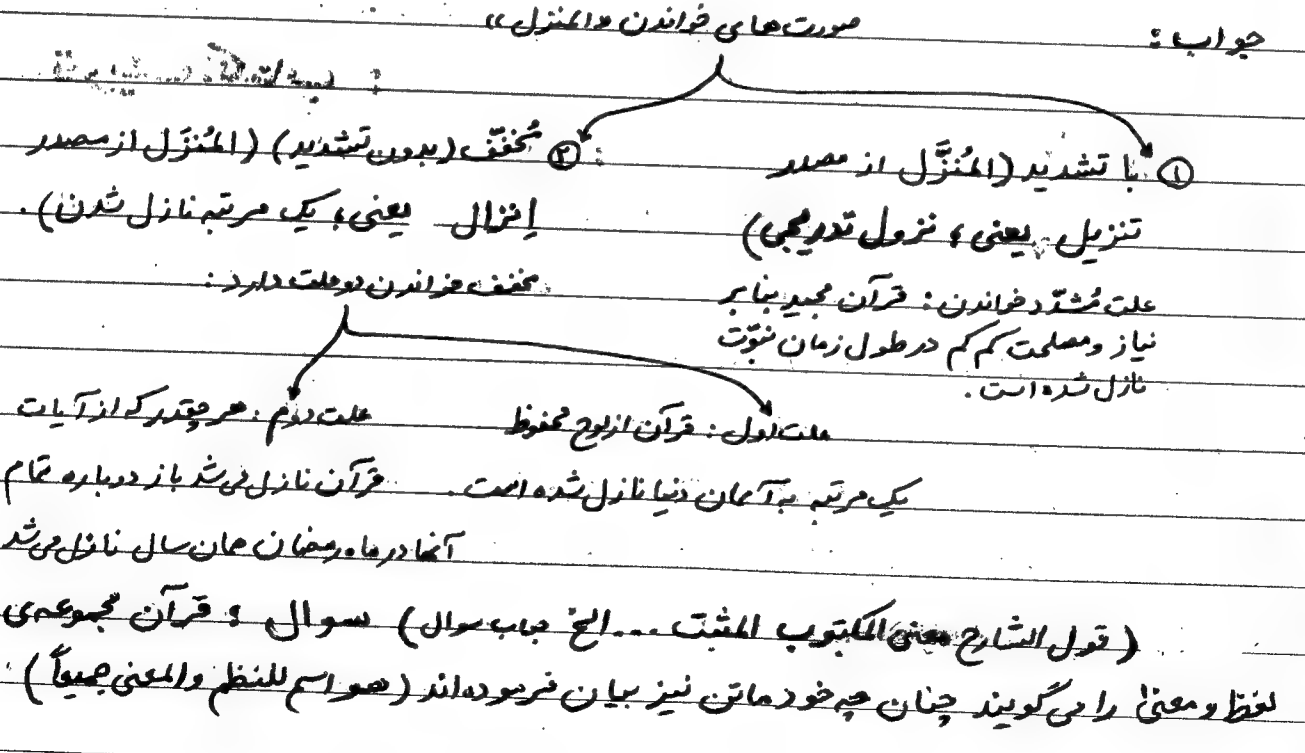 جواب :
صورت‌های خواندن «المنزل»
① با تشدید (المُنزَّل از مصدر
تنزیل یعنی ؛ نزول تدریجی)
علت مُشدّد خواندن : قرآن مجید بنابر
نیاز و مصلحت کم کم در طول زمان نبوّت
نازل شده است .
② مُخفَّف (بدون تشدید) (المُنزَل از مصدر
إنزال یعنی ؛ یک مرتبه نازل شدن) .
مخفف خواندن دو علت دارد :
علت اول : قرآن از لوح محفوظ
یک مرتبه به آسمان دنیا نازل شده است .
علت دوم : هر چقدر که از آیات
قرآن نازل می‌شد باز دوباره تمام
آنها در ماه رمضان همان سال نازل می‌شد
(قول الشارح معنی المکتوب المثبت ... الخ جواب سوال) سوال ؛ قرآن مجموعه‌ی
لفظ و معنیٰ را می‌گویند چنان چه خود ماتن نیز بیان فرموده‌اند (هو اسم للنظم والمعنی جمیعاً) .